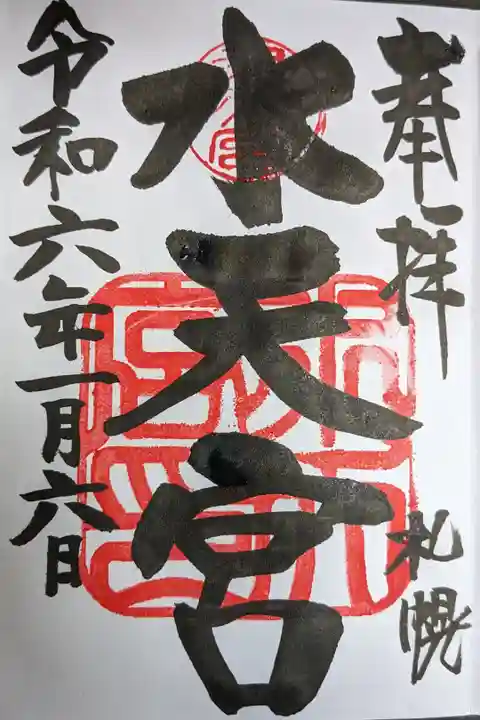 奉拝
札幌
水天宮
令和六年一月六日